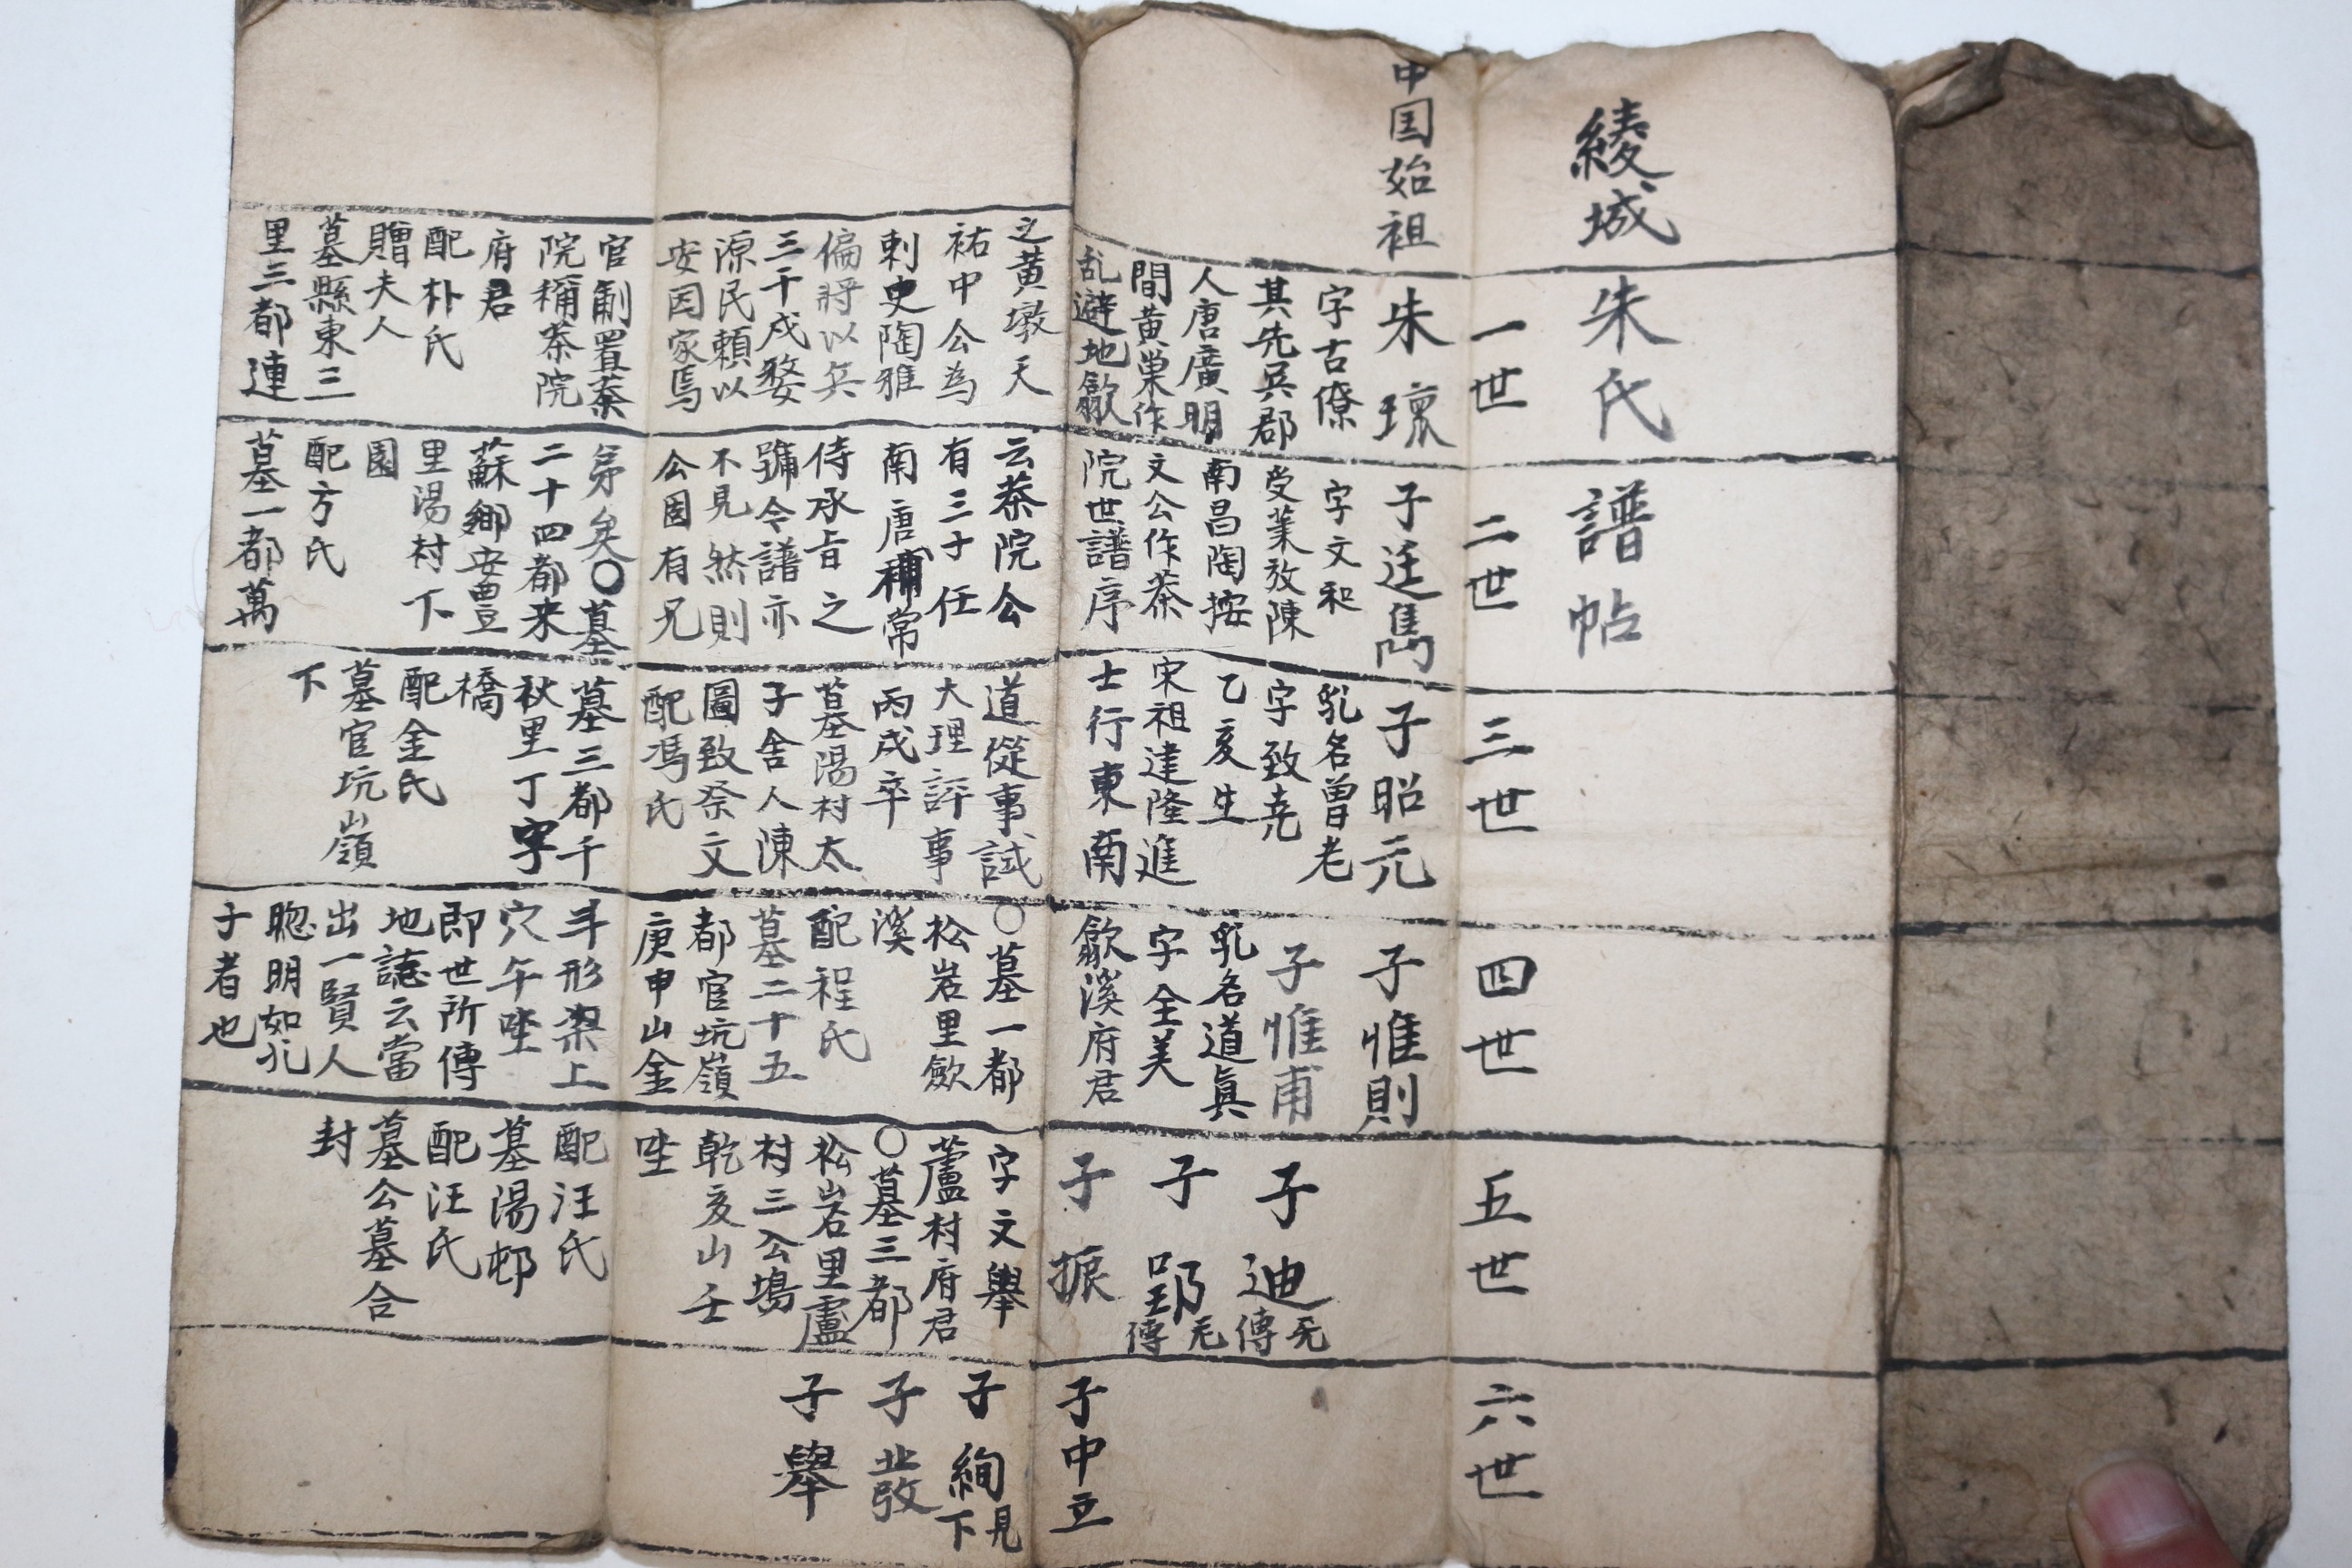 綾城
朱氏
譜帖
中国始祖
一世
朱瓌
字古僚
其先吳郡
人唐廣明
間黄巢作
乱避地歙
之黄墩天
祐中公為
刺史陶雅
偏將以兵
三千戍婺
源民頼以
安因家焉
官制置茶
院稱茶院
府君
配朴氏
贈夫人
墓縣東三
里三都連
二世
子廷雋
字文和
受業於陳
南昌陶按
文公作茶
院世譜序
云茶院公
有三子任
南唐補常
侍承旨之
號今譜亦
不見然則
公固有兄
弟矣○墓
二十四都来
蘇鄉安豊
里湯村下
園
配方氏
墓一都萬
三世
子昭元
乳名曾老
字致堯
乙亥生
宋祖建隆進
士行東南
道從事試
大理評事
丙戌卒
墓湯村太
子舍人陳
圖致祭文
配馮氏
墓三都千
秋里丁字
橋
配金氏
墓官坑嶺
下
四世
子惟則
子惟甫
乳名道眞
字全美
歙溪府君
○墓一都
松岩里歙
溪
配程氏
墓二十五
都官坑嶺
庚申山金
斗形梁上
穴午坐
即世所傳
地誌云當
出一賢人
聰明如孔
子者也
五世
子迪
无傳
子郢
无傳
子振
字文舉
蘆村府君
○墓三都
松岩里盧
村三公塢
乾亥山壬
坐
配汪氏
墓湯邨
配汪氏
墓公墓合
封
六世
子中立
子絢
見下
子發
子舉